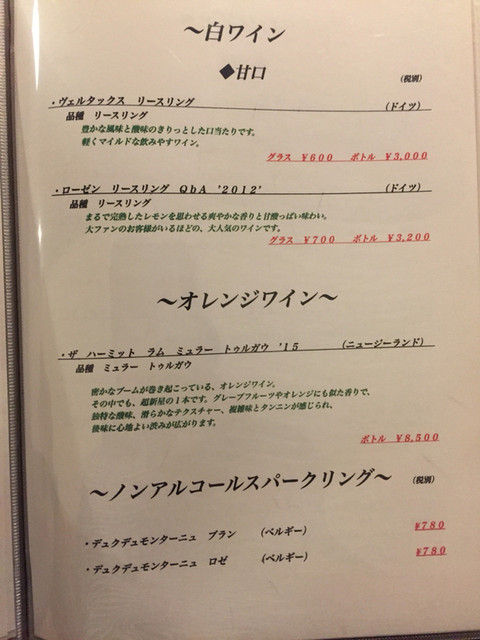 ～白ワイン
◆甘口
(税別)
・ヴェルタックス リースリング (ドイツ)
品種 リースリング
豊かな風味と酸味のきりっとした口当たりです。
軽くマイルドな飲みやすワイン。
グラス ¥600 ボトル ¥3,000
・ローゼン リースリング QbA '2012' (ドイツ)
品種 リースリング
まるで完熟したレモンを思わせる爽やかな香りと甘酸っぱい味わい。
大ファンのお客様がいるほどの、大人気のワインです。
グラス ¥700 ボトル ¥3,200
～オレンジワイン～
・ザ ハーミット ラム ミュラー トゥルガウ '15 (ニュージーランド)
品種 ミュラー トゥルガウ
密かなブームが巻き起こっている、オレンジワイン。
その中でも、超新星の1本です。グレープフルーツやオレンジにも似た香りで、
独特な酸味、滑らかなテクスチャー、複雑味とタンニンが感じられ、
後味に心地よい渋みが広がります。
ボトル ¥8,500
～ノンアルコールスパークリング～ (税別)
・デュクデュモンターニュ ブラン (ベルギー) ¥780
・デュクデュモンターニュ ロゼ (ベルギー) ¥780